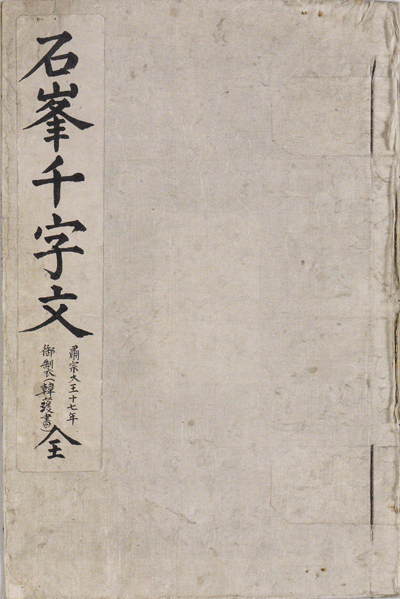 石峯千字文
肅宗大王十七年
御製(韓濩書)
全